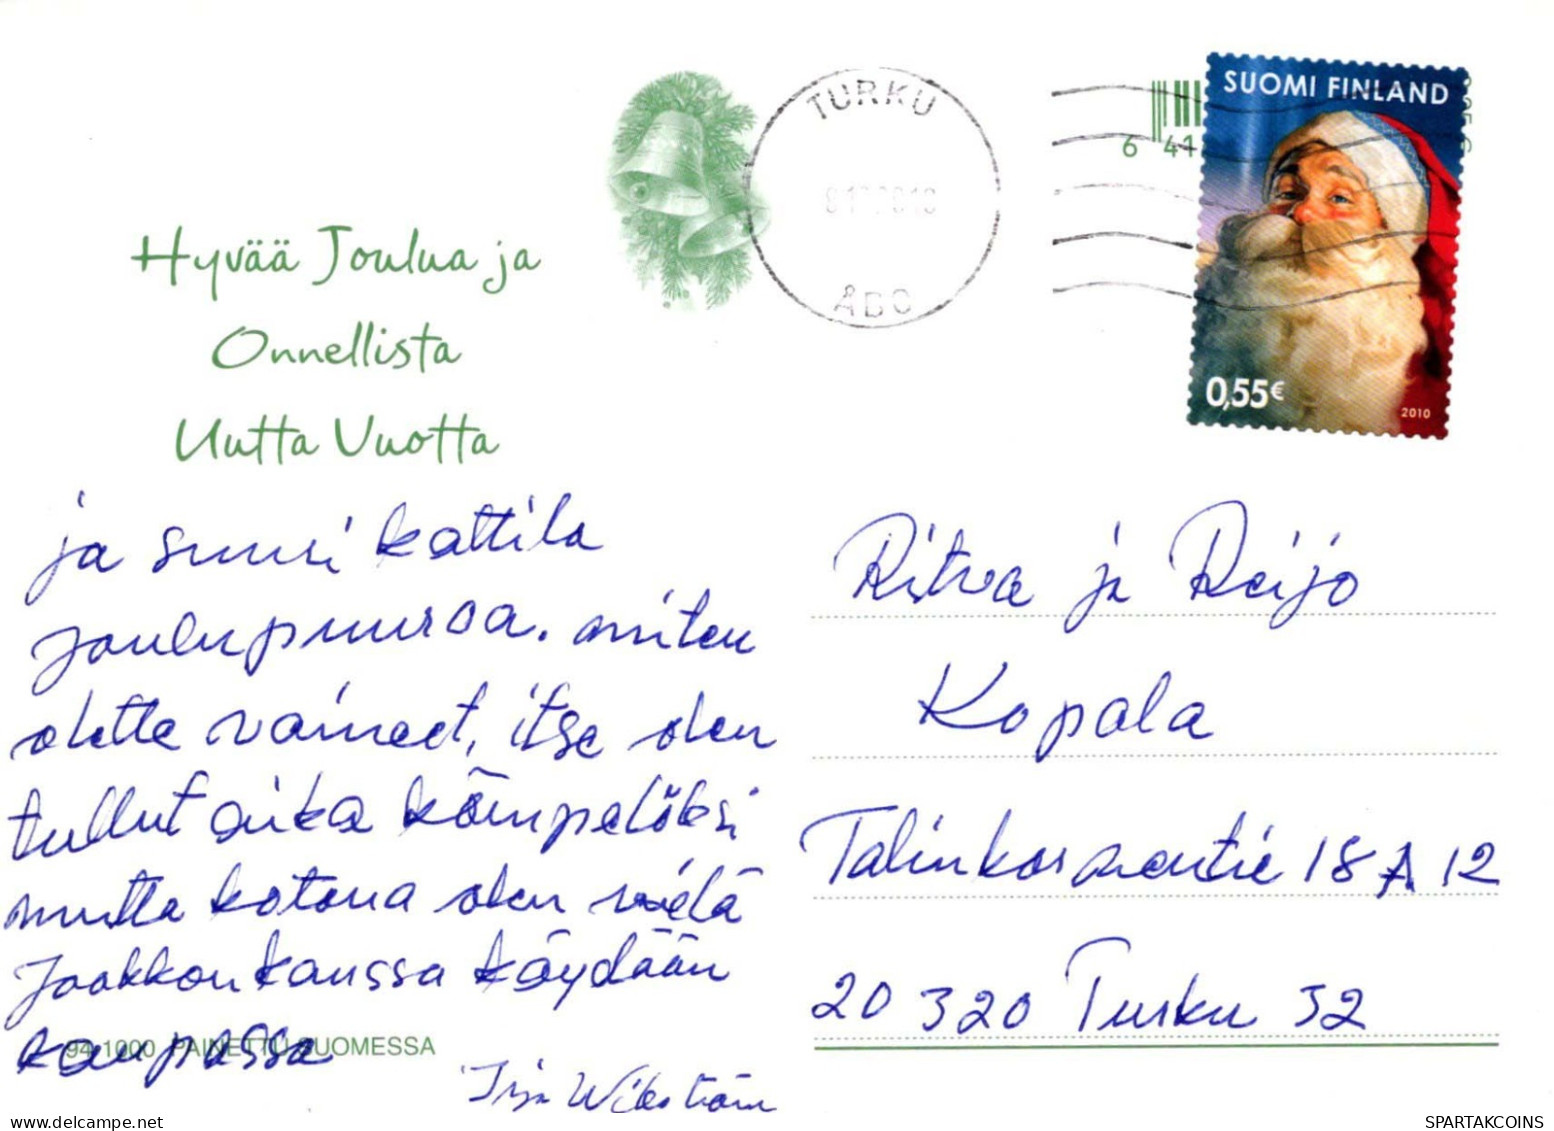 TURKU
ÅBO
6 41
SUOMI FINLAND
0,55€
2010
Hyvää Joulua ja
Onnellista
Uutta Vuotta
ja suuri kattila
joulupuuroa. miten
olette voineet, itse olen
tullut aika kömpelöksi
mutta kotona olen vielä
Jaakkon kanssa käydään
kaupassa
94-1000 PAINETTU SUOMESSA
Irja Wikström
Ritva ja Reijo
Kopala
18 A 12
20320 Turku 32
SPARTAKCOINS